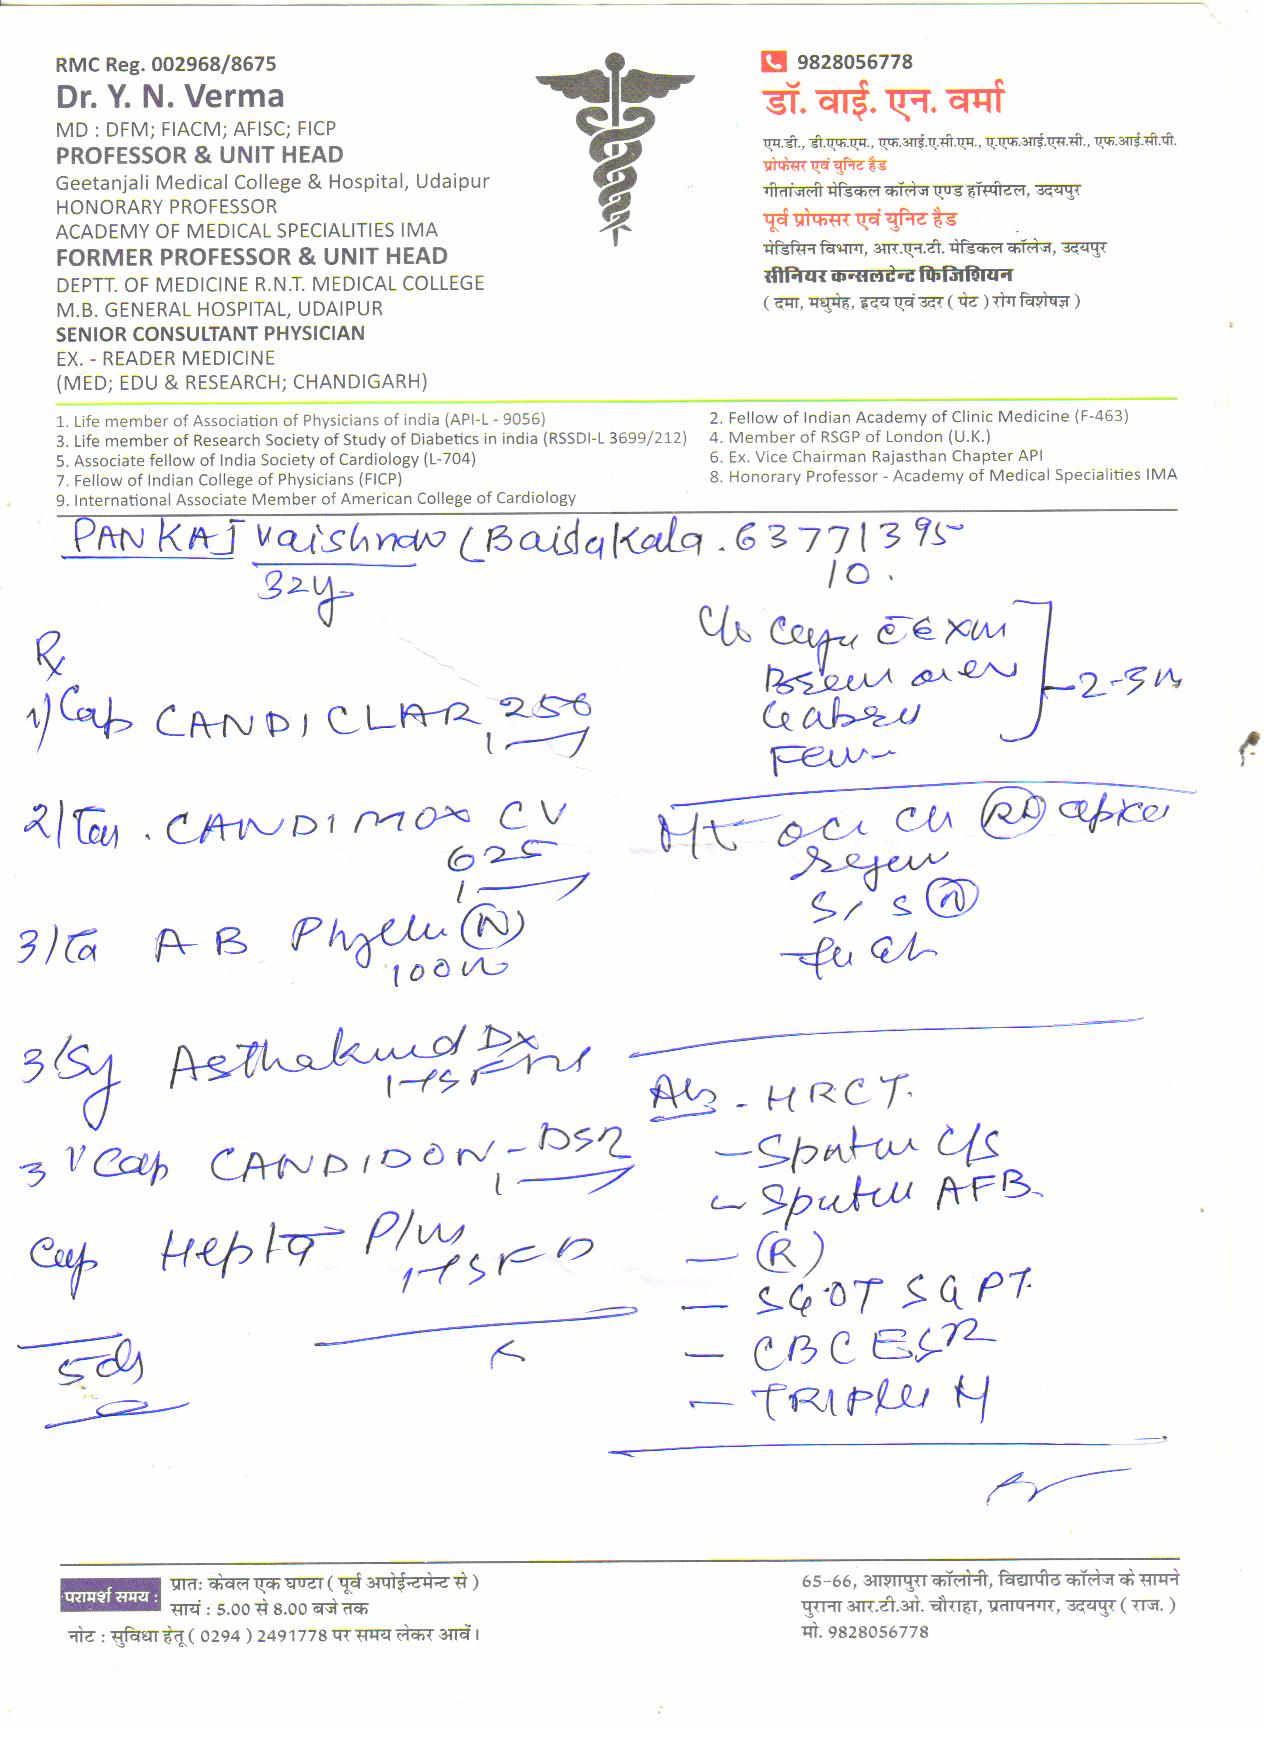 RMC Reg. 002968/8675
Dr. Y. N. Verma
MD : DFM; FIACM; AFISC; FICP
PROFESSOR & UNIT HEAD
Geetanjali Medical College & Hospital, Udaipur
HONORARY PROFESSOR
ACADEMY OF MEDICAL SPECIALITIES IMA
FORMER PROFESSOR & UNIT HEAD
DEPTT. OF MEDICINE R.N.T. MEDICAL COLLEGE
M.B. GENERAL HOSPITAL, UDAIPUR
SENIOR CONSULTANT PHYSICIAN
EX. - READER MEDICINE
(MED; EDU & RESEARCH; CHANDIGARH)
9828056778
डॉ. वाई. एन. वर्मा
एम.डी., डी.एफ.एम., एफ.आई.ए.सी.एम., ए.एफ.आई.एस.सी., एफ.आई.सी.पी.
प्रोफेसर एवं युनिट हैड
गीतांजली मेडिकल कॉलेज एण्ड हॉस्पीटल, उदयपुर
पूर्व प्रोफसर एवं युनिट हैड
मेडिसिन विभाग, आर.एन.टी. मेडिकल कॉलेज, उदयपुर
सीनियर कन्सलटेन्ट फिजिशियन
( दमा, मधुमेह, हृदय एवं उदर ( पेट ) रोग विशेषज्ञ )
1. Life member of Association of Physicians of india (API-L - 9056)
2. Fellow of Indian Academy of Clinic Medicine (F-463)
3. Life member of Research Society of Study of Diabetics in india (RSSDI-L 3699/212)
4. Member of RSGP of London (U.K.)
5. Associate fellow of India Society of Cardiology (L-704)
6. Ex. Vice Chairman Rajasthan Chapter API
7. Fellow of Indian College of Physicians (FICP)
8. Honorary Professor - Academy of Medical Specialities IMA
9. International Associate Member of American College of Cardiology
PANKAJ Vaishnav (BaidaKala. 63771395
10.
32y
Rx
1) Cap CANDICLAR 250
1
2/ CANDIMOX CV
625
1
3/ A B Phyllin (N)
100
3/Sy Asthakind DX
1 TSF
3 Cap CANDIDON-DSR
1
Cap
1 TSF
5d
C/o
2-3
S/S (N)
Adv - HRCT.
- Sputum C/S
- Sputum AFB.
- (R)
- SGOT SGPT.
- CBC ESR
- TRIPLE H
परामर्श समय :
प्रात: केवल एक घण्टा ( पूर्व अपोईन्टमेन्ट से )
सायं : 5.00 से 8.00 बजे तक
नोट : सुविधा हेतू ( 0294 ) 2491778 पर समय लेकर आवें।
65-66, आशापुरा कॉलोनी, विद्यापीठ कॉलेज के सामने
पुराना आर.टी.ओ. चौराहा, प्रतापनगर, उदयपुर ( राज. )
मो. 9828056778